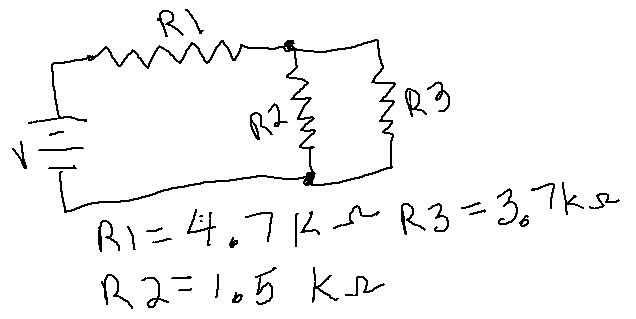 R1
R2
R3
V
R1 = 4.7 K Ω R3 = 3.7 k Ω
R2 = 1.5 K Ω